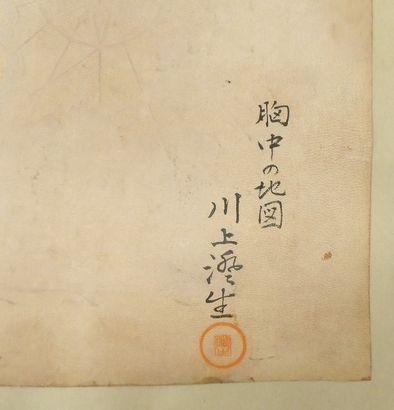 胸中の地図
川上澄生